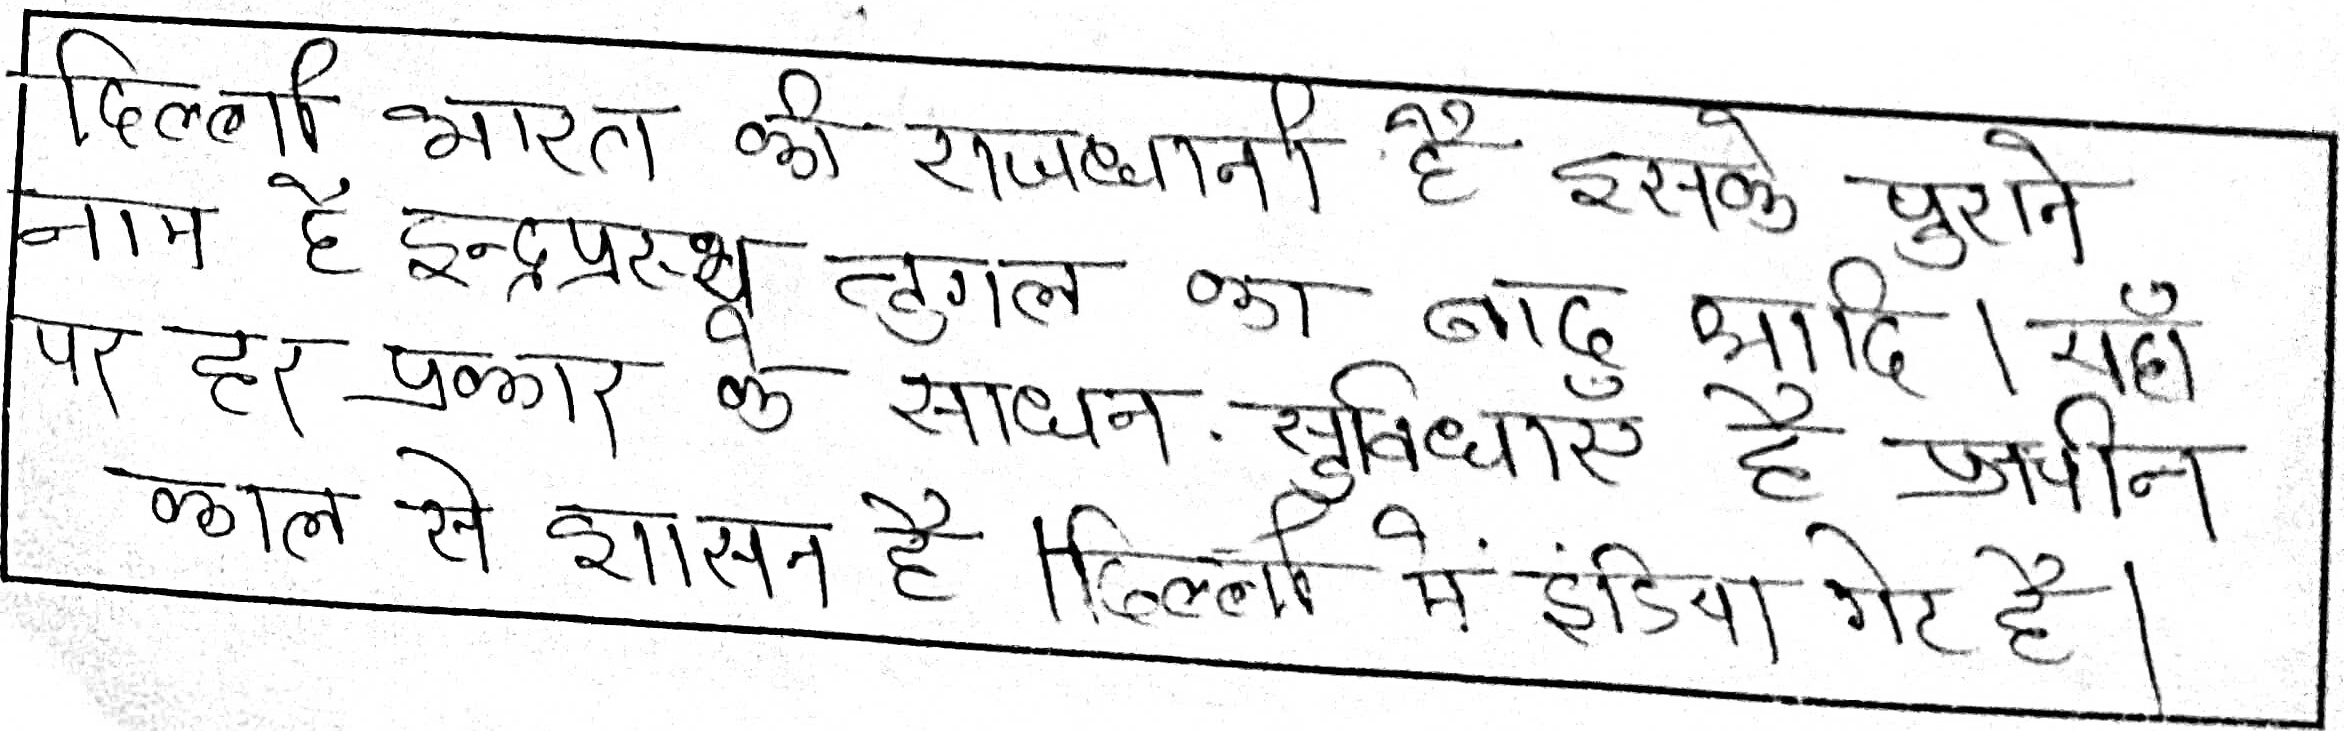 दिल्ली भारत की राजधानी है इसके पुराने
नाम है इन्द्रप्रस्थ तुगल का बाद आदि । यहाँ
पर हर प्रकार के साधन सुविधाएँ है प्राचीन
काल से शासन है । दिल्ली में इंडिया गेट है ।